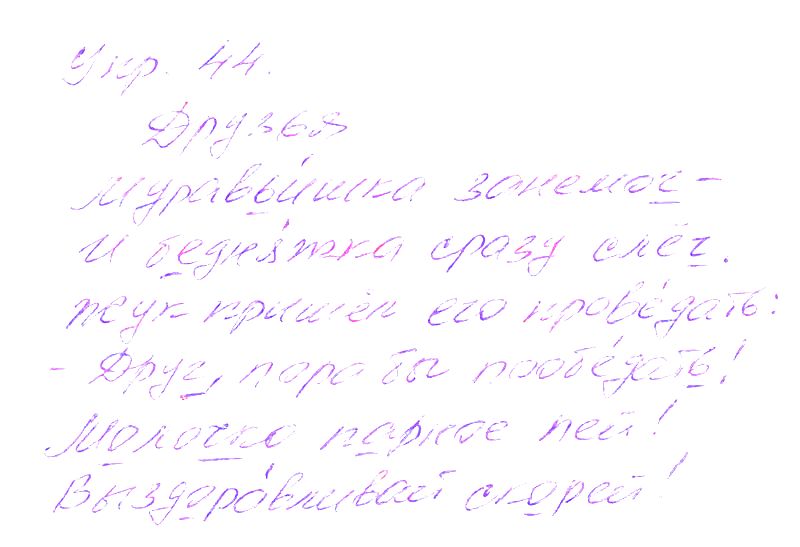 Упр. 44.
Друзья
Муравьишка занемог -
И бедняжка сразу слёг.
Жук пришёл его проведать:
- Друг, пора бы пообедать!
Молочко парное пей!
Выздоравливай скорей!